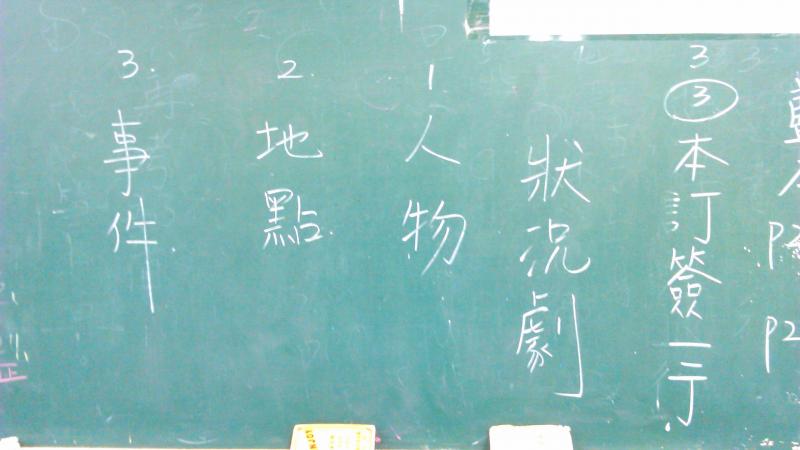 3 ③本訂簽一行
狀況劇
1 人物
2. 地點
3. 事件